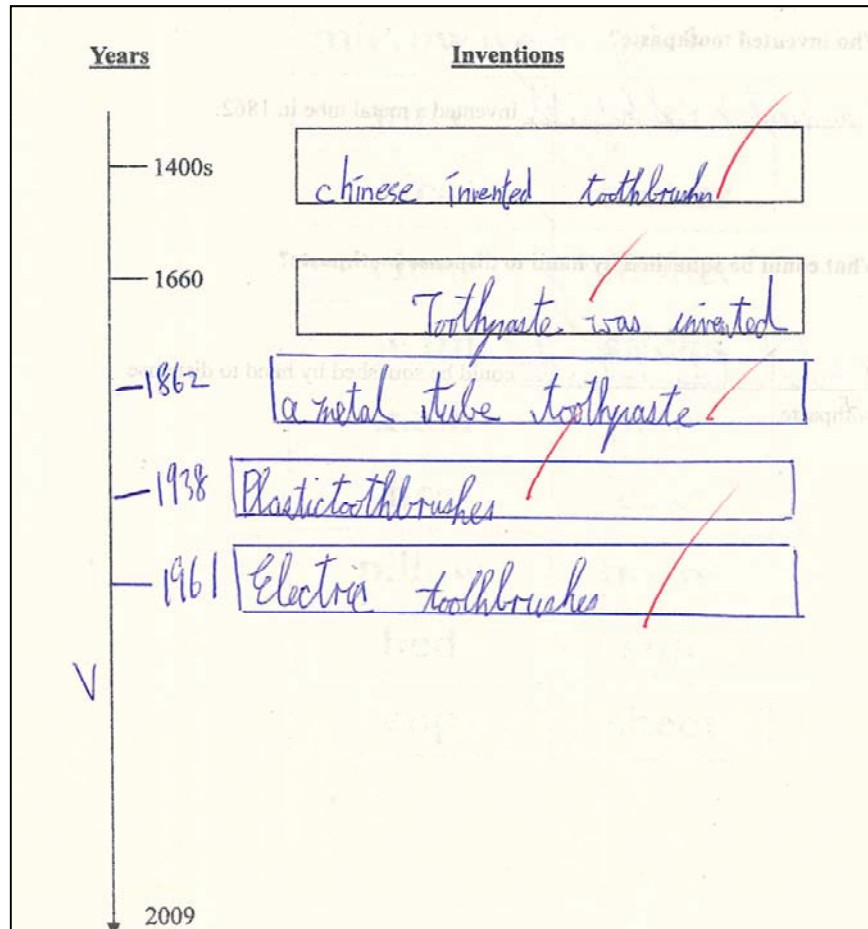 Years Inventions
1400s chinese invented toothbrushes
1660 Toothpaste was invented
1862 a metal tube toothpaste
1938 Plastictoothbrushes
1961 Electric toothbrushes
V
2009